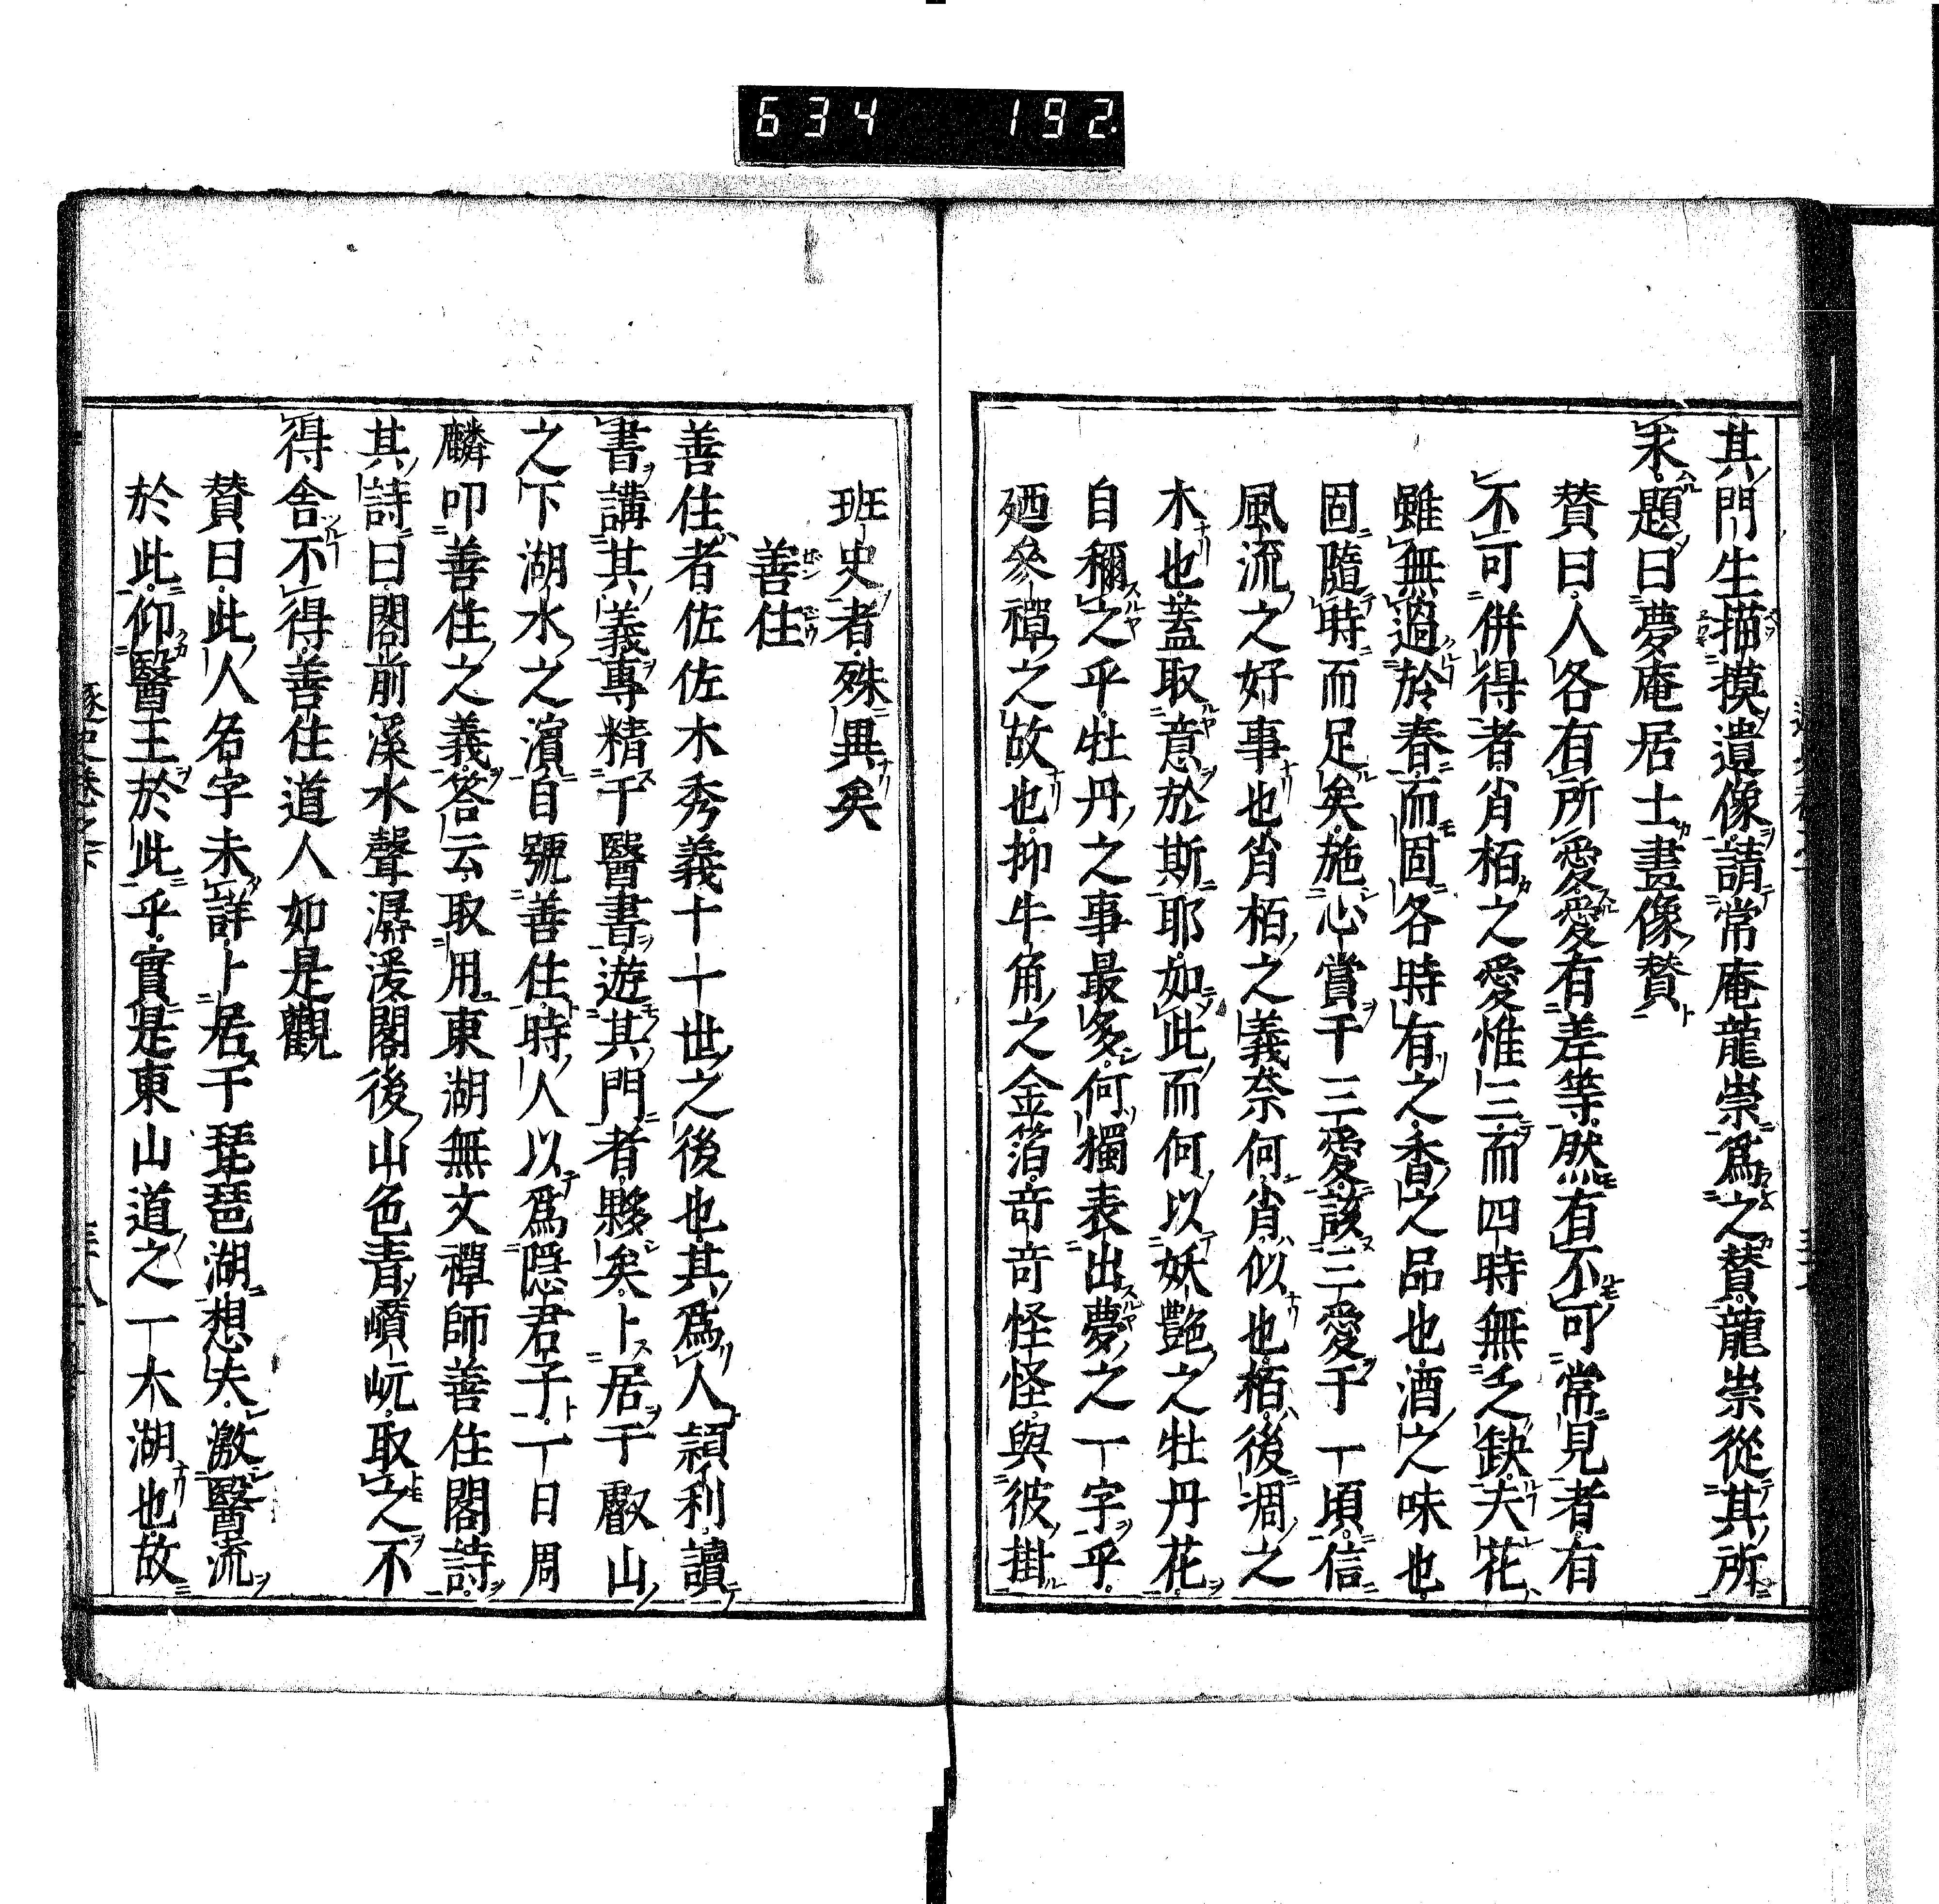 634 192
其門生描摸遺像請常庵龍崇爲之賛龍崇從其所
求題曰夢庵居士畫像賛
賛曰人各有所愛愛有差等然有不可常見者有
不可併得者肖栢之愛惟三而四時無乏缺夫花
雖無過於春而固各時有之香之品也酒之味也
固隨時而足矣施心賞于三愛該三愛于一頃信
風流之好事也肖栢之義奈何肖似也栢後凋之
木也蓋取意於斯耶如此而何以妖艶之牡丹花
自稱之乎牡丹之事最多何獨表出夢之一字乎
廼參禪之故也抑牛角之金箔竒竒怪怪與彼掛
班史者殊異矣
善住
善住者佐佐木秀義十一世之後也其爲人頴利讀
書講其義專精于醫書遊其門者夥矣卜居于叡山
之下湖水之濵自號善住時人以爲隠君子一日周
麟叩善住之義答云取用東湖無文禪師善住閣詩
其詩曰閣前溪水聲潺湲閣後山色青巑岏取之不
得舍不得善住道人如是觀
賛曰此人名字未詳卜居于琵琶湖想夫激醫流
於此仰醫王於此乎實是東山道之一木湖也故